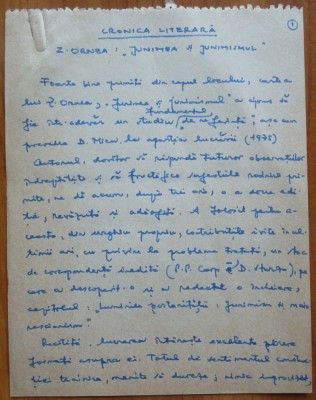 1
CRONICA LITERARĂ
Z. ORNEA: "JUNIMEA ȘI JUNIMISMUL"
Foarte bine primită din capul locului, cartea
lui Z. Ornea, "Junimea și junimismul" a ajuns să
fie într-adevăr un studiu fundamental "de referință", așa cum
prevedea D. Micu, la apariția lucrării (1975)
Autorul, dornic să răspundă tuturor observațiilor
îndreptățite și să fructifice sugestiile
ne, ne dă acum, după trei ani, o a doua edi-
ție, revizuită și adăugită. A folosit pentru a-
ceasta, din unghiu propriu, contribuțiile ivite în ul-
timii ani, cu privire la problema tratată, un stoc
de corespondență inedită (P.P. Carp și D. Sturza), pe
care a descoperit-o și a redactat o încheiere,
capitolul, "Luminile posterității, Junimism și maio-
rescianism".
Recitită, lucrarea întărește excelenta părere
formată asupra ei. Totul dă sentimentul
trainice, menite să dureze;